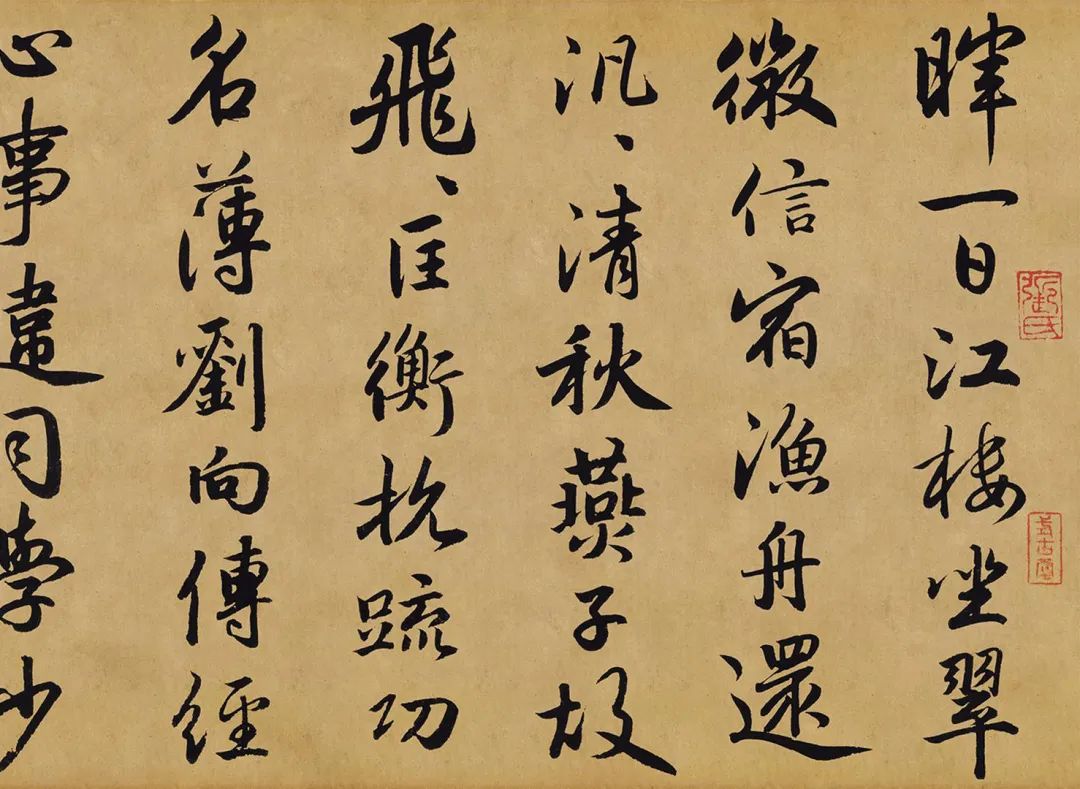 暉一日江樓坐翠
微信宿漁舟還
汎〻清秋燕子故
飛〻匡衡抗疏功
名薄劉向傳經
心事違同學少
式古堂